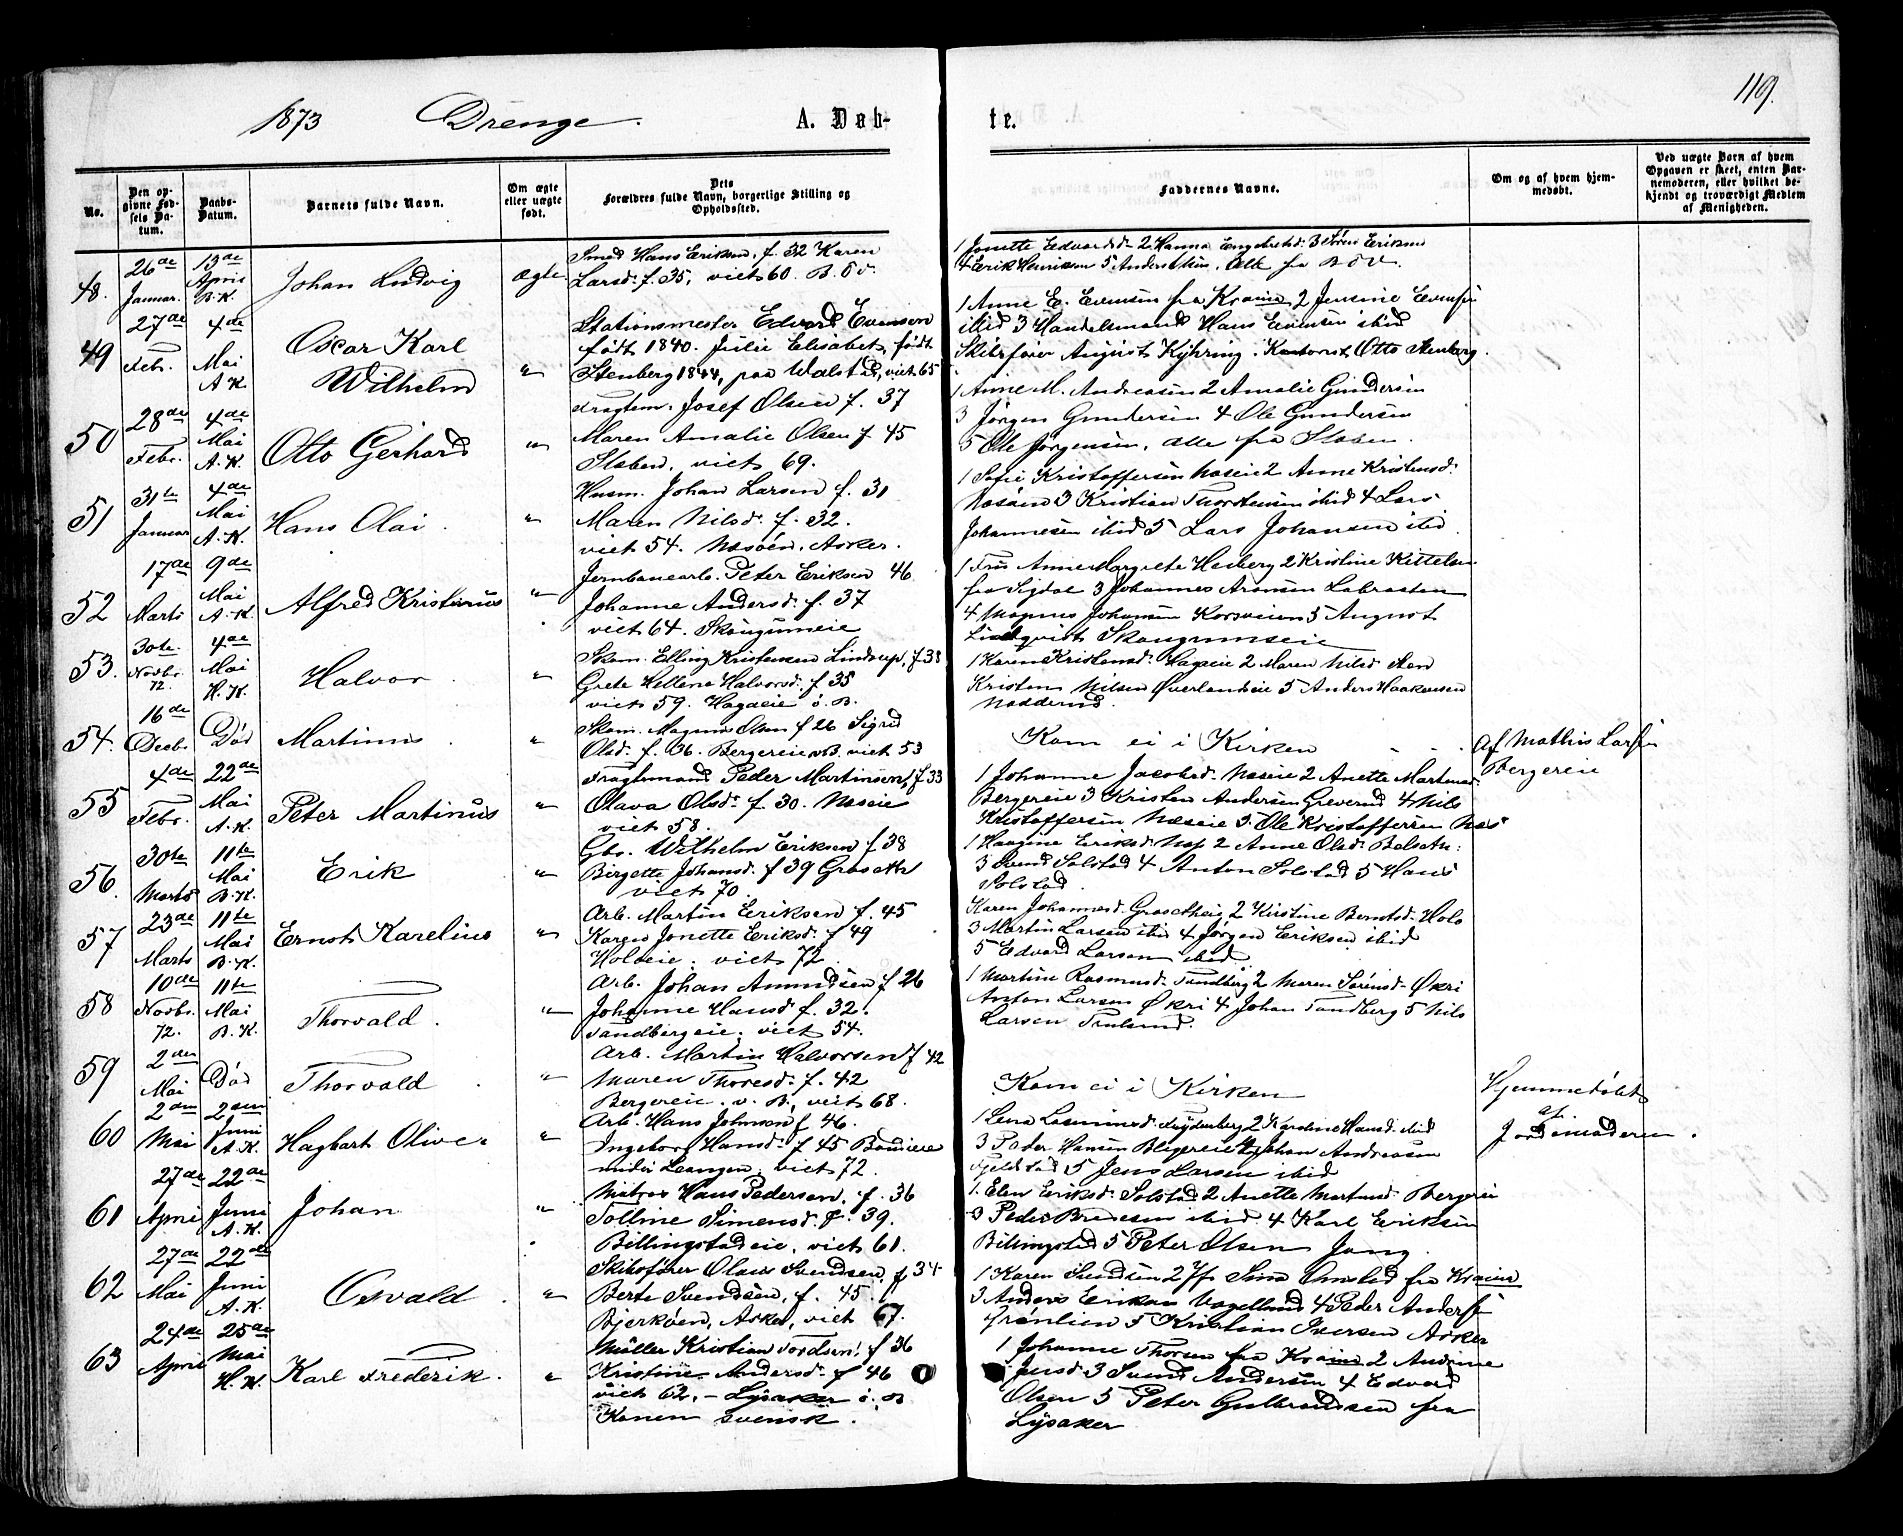 119.
1873 Drenge. A. Døb-te.
No.
Den opgivne Fødsels Datum.
Daabs-Datum.
Barnets fulde Navn.
Om ægte eller uægte født.
Dets Forældres fulde Navn, borgerlige Stilling og Opholdssted.
Faddernes Navne.
Om og af hvem hjemmedøbt.
Ved uægte Børn af hvem Opgaven er skeet, enten Barnemoderen, eller hvilket bekjendt og troværdigt Medlem af Menigheden.
48. 26de Januar. 13de April B.K. Johan Ludvig ægte
Smed Hans Eriksen. f. 32 Karen
Larsd. f. 35, viet 60. B.
1 Jonette Edvardsd. 2 Hanna Engebretsd. 3 Søren Eriksen
4 Erik Henriksen 5 Anders
49 27de Febr. 4de Mai A.K. Oscar Karl
Wilhelm "
Stationsmester Edvard Evensen
født 1840. Julie Elisabet, født
Stenberg 1844, paa Walstd, viet 65
1 Anne E. Evensen fra Krania 2 Jensine Evensen
ibid 3 Handelsmand Hans Evensen ibid
Skibsfører August Kyhring. Kontorist Otto Stenberg.
50 28de Febr. 4de Mai A.K. Otto Gerhard "
Fragtem. Josef Olsen f. 37
Maren Amalie Olsen f. 45
Slaben, viet 69.
1 Anne M. Andreasen 2 Amalie Gundersen
3 Jørgen Gundersen 4 Ole Gundersen
5 Ole Jørgensen, alle fra Slaben.
51 31te Januar 4de Mai A.K. Hans Olai. "
Husm. Johan Larsen f. 31
Maren Nilsd. f. 32.
viet 54. Næsøen, Asker.
1 Sofie Kristoffersen Næseie 2 Anne Kristensd.
Næsøen 3 Kristian Thorstensen ibid 4 Lars
Johannesen ibid 5 Lars Johansen ibid
52 17de Marts 9de Mai A.K. Alfred Kristinius "
Jernbanearb. Peter Eriksen 46
Johanne Andersd. f. 37
viet 64. Skougumeie
1 Fru Anne Margrete Hesberg 2 Kristine Kittelsen
fra Sigdal 3 Johannes Aronsen Labraaten
4 Magnus Johansen Korsveien 5 August
Lindqvist Skougumseie
53. 30te Novbr. 72. 4de Mai H.K. Halvor. "
Skom. Elling Kristensen Lindrup, f. 38
Grete Hellena Halvorsd. f. 35
viet 59. Hagaeie i B.
1 Karen Kristensd. Hagaeie 2 Maren Nilsd.
Kristen Nilsen Øverlandeie 5 Anders Haakensen
Nadderud.
54. 16de Decbr. Død Martinus. "
Skom. Magnus Olsen f 26 Sigrid
Olsd. f. 36. Bergereie v. B. viet 53
Kom ei i Kirken
Af Mathis Larsen
Bergereie
55 4de Febr. 22de Mai A.K. Peter Martinus "
Fragtemand Peder Martinsen, f 33
Olava Olsd. f. 30. Næseie
viet 58.
1 Johanne Jacobsd. Næseie 2 Anette Martinsd.
Bergereie 3 Kristen Andersen Greverud 4 Nils
Kristoffersen Næseie 5 Ole Kristoffersen Næs
56. 30te Marts 11te Mai B.K. Erik "
Gbr. Wilhelm Eriksen f 38
Birgette Johansd. f 39 Groseth
viet 70.
1 Haagine Eriksd. Hop 2 Anne Olsd. Belseth.
3 Svend Solstad 4 Anton Solstad 5 Hans
Solstad.
57 23de Marts 11te Mai B.K. Ernst Karelius "
Arb. Martin Eriksen f. 45
Karen Jonette Eriksd. f 49
Holoeie. viet 72.
Karen Johannesd. Grosetheig 2 Kirstine Berntsd. Holo
3 Martin Larsen ibid 4 Jørgen Eriksen ibid
5 Edvard Larsen ibid
58 10de Novbr. 72. 11te Mai B.K. Thorvald. "
Arb. Johan Amundsen f 26
Johanne Hansd. f. 32.
Tandbergeie. viet 54.
1 Martine Rasmusd. Tandberg 2 Maren Sørensd. Økri
Anton Larsen Økri 4 Johan Tandberg 5 Nils
Larsen Trulsrud.
59 2den Mai Død Thorvald. "
Arb. Martin Halvorsen f 42
Maren Thoresd. f. 42
Bergereie. v. B, viet 68.
Kom ei i Kirken
Hjemmedøbt
af
Jordemoderen.
60 2den Mai 2den Juni A.K. Hagbart Oliver "
Arb. Hans Johnsen f 46.
Ingeborg Hansd. f 45
under Leangen. viet 72.
1 Lena 2 Karoline Hansd. ibid
3 Peder Hansen Bergereie 4 Johan Andreasen
5 Jens Larsen ibid
61 27de April 22de Juni A.K. Johan "
Matros Hans Pedersen. f. 36
Tolline Simensd. f. 39.
Billingstadeie, viet 61.
1. Elen Eriksd. Solstad 2 Anette Martinsd. Bergereie
3 Peder Bredesen ibid. 4 Karl Eriksen
Billingstad 5 Peter Olsen Jong.
62 27de Mai 22de Juni A.K. Osvald. "
Skibsfører Olaus Svendsen f 34
Berte Svendsen, f. 45.
Bjerkøen, Asker, viet 67.
1 Karen Svendsen 2 Jfr Sina Omsted fra Krania
3 Anders Eriksen Vogellund 4 Peder Andersen
Grønlien 5 Kristian Iversen Asker
63 24de April 25de Mai H.K. Karl Frederik. "
Møller Kristian Tordsen. f 36
Kristine Andersd. f 46
viet 62. - Lysaker i. B
Konen svensk.
1 Johanne Thorsen fra Krania 2 Andrine
Jensd. 3 Svend Andersen 4 Edvard
Olsen 5 Peter Gulbrandsen fra
Lysaker